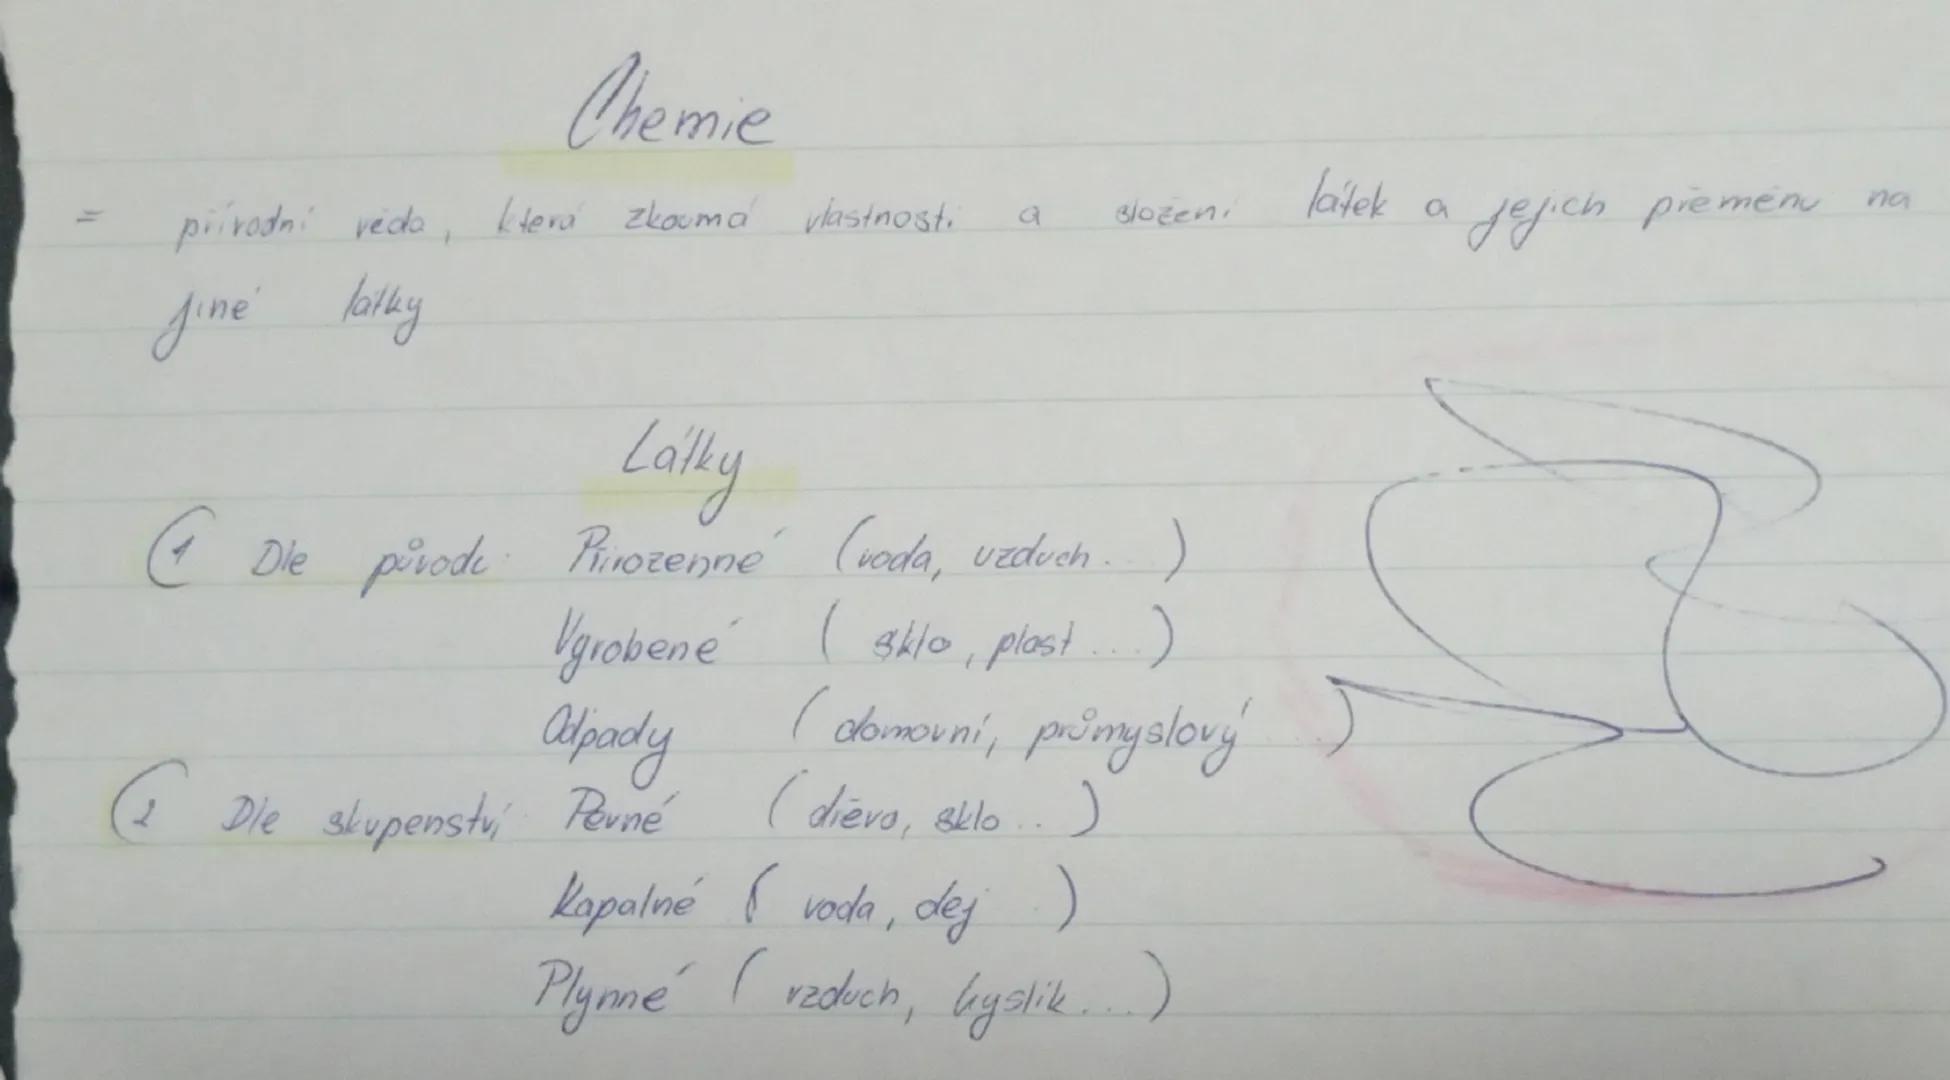 Chemie
= přírodní věda, která zkoumá vlastnosti a složení látek a jejich přeměnu na
jiné látky
Látky
1 Dle původu: Přirozenné (voda, vzduch...)
Vyrobené (sklo, plast...)
Odpady (domovní, průmyslový)
2 Dle skupenství Pevné (dřevo, sklo..)
Kapalné (voda, dej)
Plynné (vzduch, kyslík...)